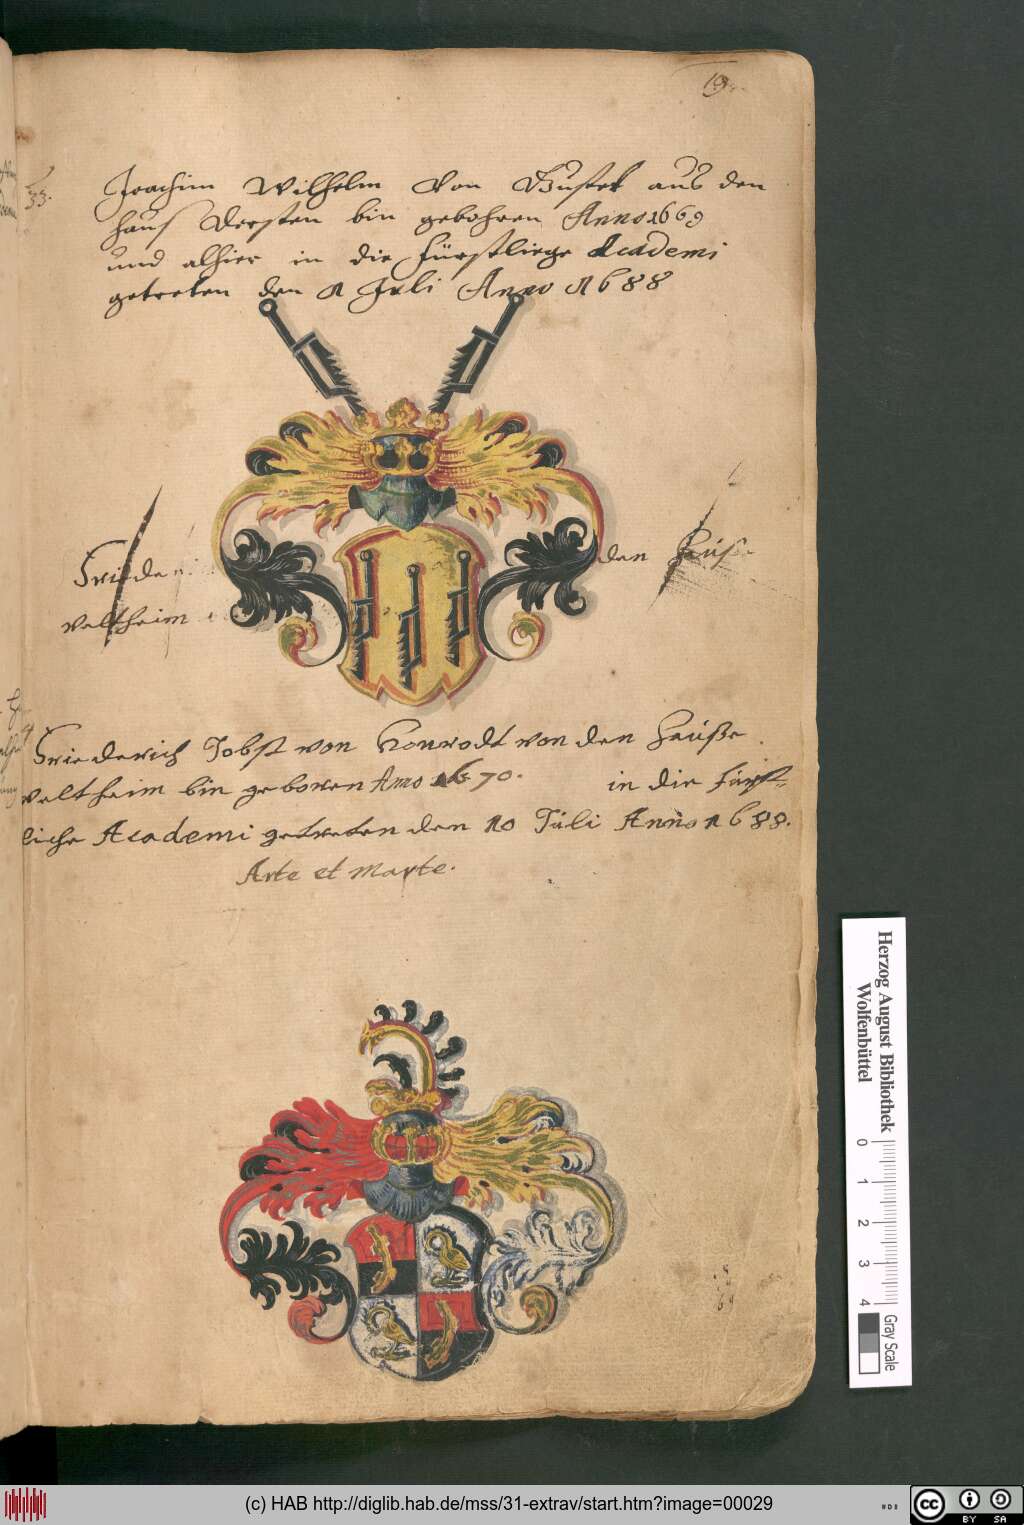 19
33.
Joachim Wilhelm Von Gustet aus den
hauß Dersten bin gebohren Anno 1669
und alhier in die fürstliege Academi
getreten den 1 Juli Anno 1688
Friede den Hauß
veltheim
Friederich Jobst von Honrodt von den Hauße
veltheim bin geboren Anno 1670. in die fürst=
liche Academi getreten den 10 Juli Anno 1688.
Arte et Marte.
Herzog August Bibliothek
Wolfenbüttel
0 1 2 3 4
Gray Scale
(c) HAB http://diglib.hab.de/mss/31-extrav/start.htm?image=00029
cc BY SA